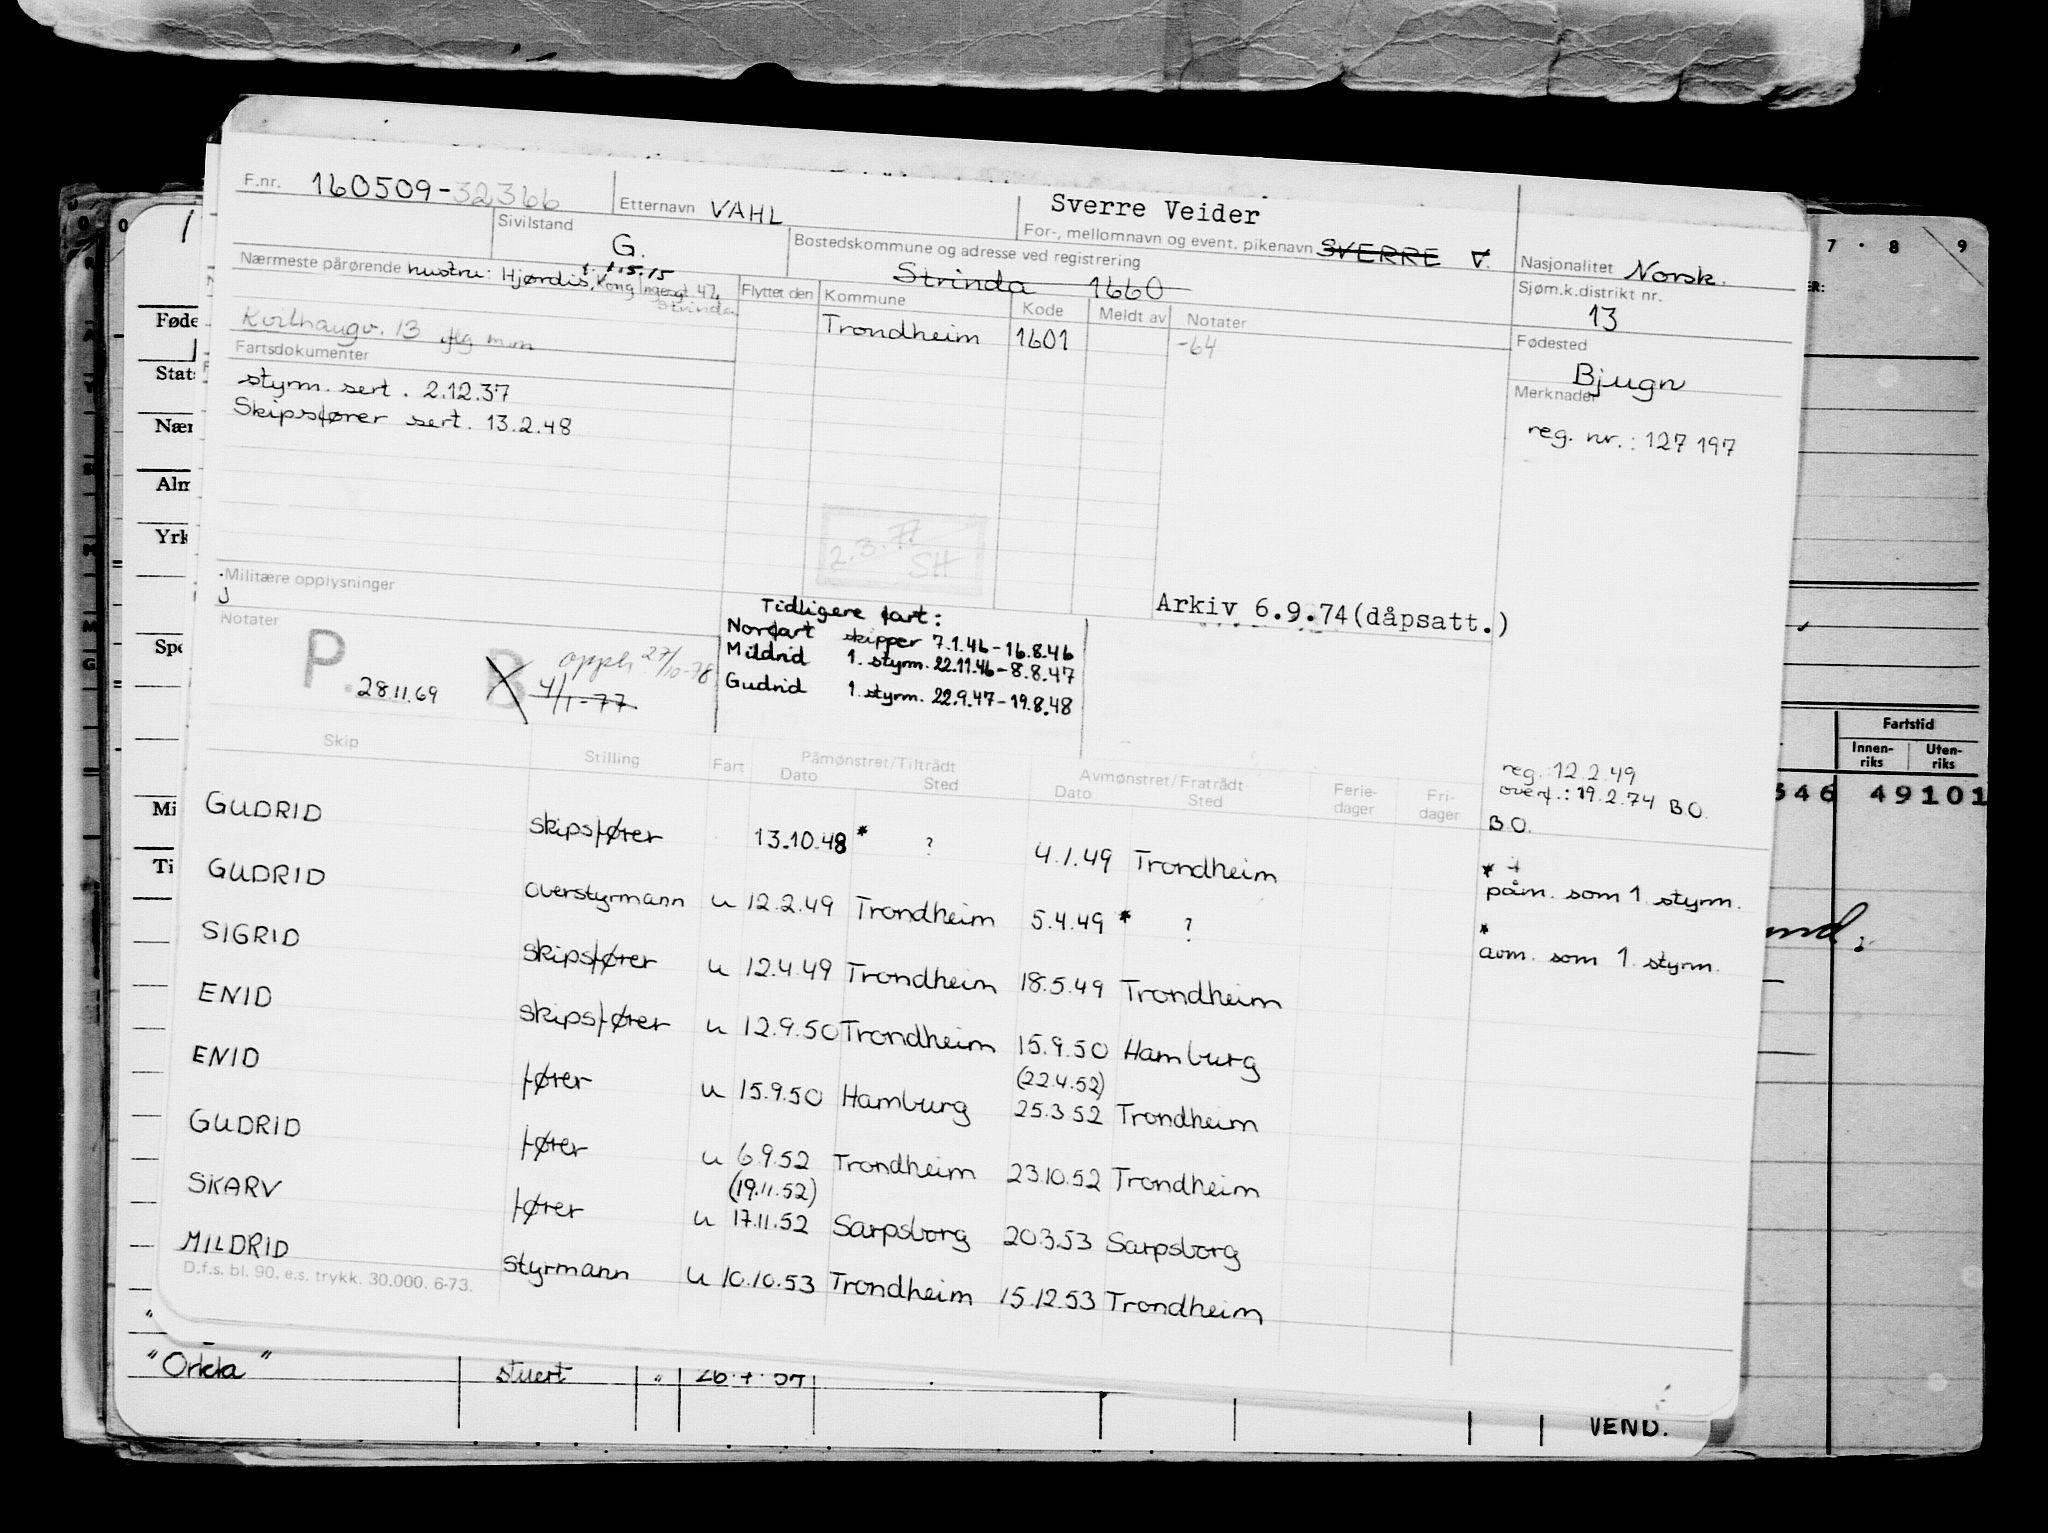 F.nr. 160509-32366
Etternavn VAHL
Sverre Veider
For-, mellomnavn og event. pikenavn SVERRE V.
Nasjonalitet Norsk.
Sivilstand G.
Bostedskommune og adresse ved registrering
Strinda 1660
Sjøm.k.distrikt nr.
13
Nærmeste pårørende hustru: Hjørdis, Kong Ingesgt 47,
1.5.15
Strinda
Kvilhaugv. 13
Flyttet den Kommune Kode Meldt av Notater
Trondheim 1601 -64
Fødested
Bjugn
Fartsdokumenter
styrm. sert. 2.12.37
Skipsfører sert. 13.2.48
Merknader
reg. nr.: 127 197
2.3.77
SH
Militære opplysninger
j
Arkiv 6.9.74(dåpsatt.)
Notater
P. 28.11.69
B 4/1-77
oppl. 27/10-78
Tidligere fart:
Norfart skipper 7.1.46-16.8.46
Mildrid 1. styrm. 22.11.46-8.8.47
Gudrid 1. styrm. 22.9.47-19.8.48
reg.: 12.2.49
overf.: 19.2.74 B.O.
B.O.
Skip Stilling Fart Påmønstret/Tiltrådt Avmønstret/Fratrådt Ferie- Fri-
Dato Sted Dato Sted dager dager
GUDRID skipsfører 13.10.48* ? 4.1.49 Trondheim * påm. som 1. styrm.
GUDRID overstyrmann u 12.2.49 Trondheim 5.4.49 * ? * avm. som 1. styrm.
SIGRID skipsfører u 12.4.49 Trondheim 18.5.49 Trondheim
ENID skipsfører u 12.9.50 Trondheim 15.9.50 Hamburg
(22.4.52)
ENID fører u 15.9.50 Hamburg 25.3.52 Trondheim
GUDRID fører u 6.9.52 Trondheim 23.10.52 Trondheim
(19.11.52)
SKARV fører u 17.11.52 Sarpsborg 20.3.53 Sarpsborg
MILDRID styrmann u 10.10.53 Trondheim 15.12.53 Trondheim
D.f.s. bl. 90. e.s. trykk. 30.000. 6-73.
"Orkla" stuert "
VEND.
7 8 9
Føde
Stat
Nær
Alm
Yrk
Spe
Mi
Ti
Fartstid
Innen-
riks
Uten-
riks
346 49101